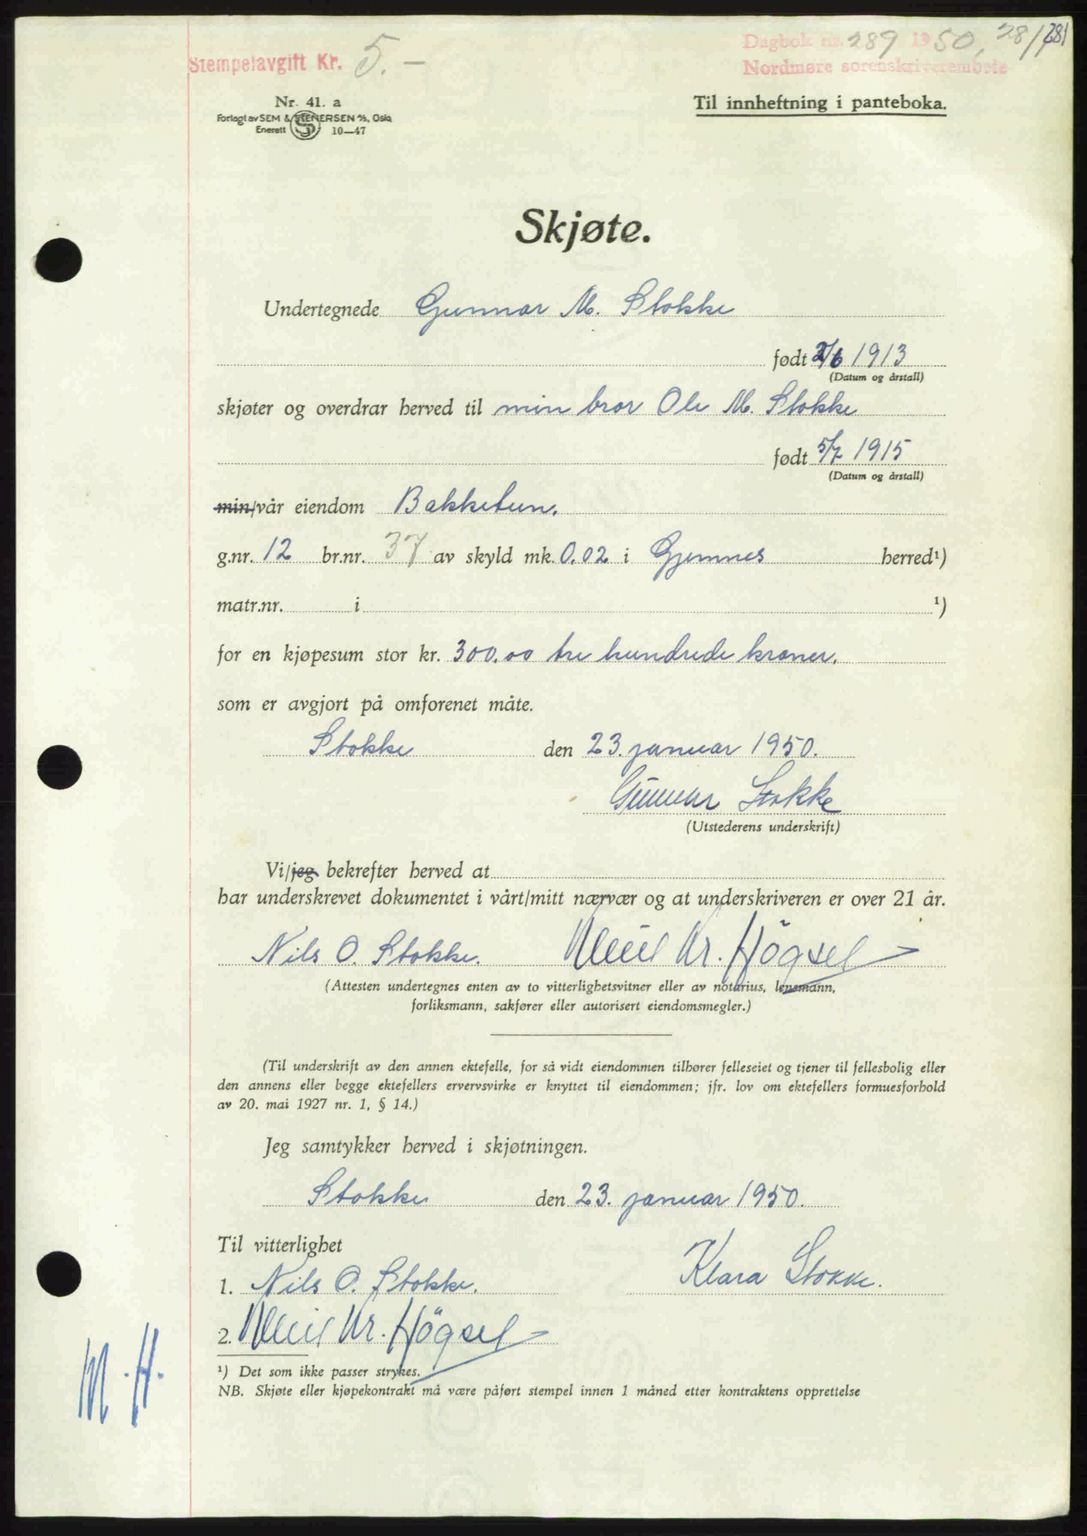 Stempelavgift Kr. 5.-
Dagbok nr. 289 1950, 28/1
281
Nordmøre sorenskriverembete
Nr. 41. a
Forlagt av SEM & STENERSEN A/S, Oslo
Enerett 10—47
Til innheftning i panteboka.
Skjøte.
Undertegnede Gunnar M. Stokke
født 2/6 1913
(Datum og årstall)
skjøter og overdrar herved til min bror Ole M. Stokke
født 5/7 1915
(Datum og årstall)
min/vår eiendom Bakketun.
g.nr. 12 br.nr. 37 av skyld mk. 0.02 i Gjemnes herred¹)
matr.nr. i ¹)
for en kjøpesum stor kr. 300.00 tre hundrede kroner.
som er avgjort på omforenet måte.
Stokke den 23. januar 1950.
Gunnar Stokke
(Utstederens underskrift)
Vi/jeg bekrefter herved at
har underskrevet dokumentet i vårt/mitt nærvær og at underskriveren er over 21 år.
Nils O. Stokke. Kr. Högsel
(Attesten undertegnes enten av to vitterlighetsvitner eller av notarius, lensmann,
forliksmann, sakfører eller autorisert eiendomsmegler.)
(Til underskrift av den annen ektefelle, for så vidt eiendommen tilhører felleseiet og tjener til fellesbolig eller
den annens eller begge ektefellers ervervsvirke er knyttet til eiendommen; jfr. lov om ektefellers formuesforhold
av 20. mai 1927 nr. 1, § 14.)
Jeg samtykker herved i skjøtningen.
Stokke den 23. januar 1950.
Til vitterlighet
1. Nils O. Stokke. Klara Stokke.
2. Kr. Högsel
M.H.
¹) Det som ikke passer strykes.
NB. Skjøte eller kjøpekontrakt må være påført stempel innen 1 måned etter kontraktens opprettelse